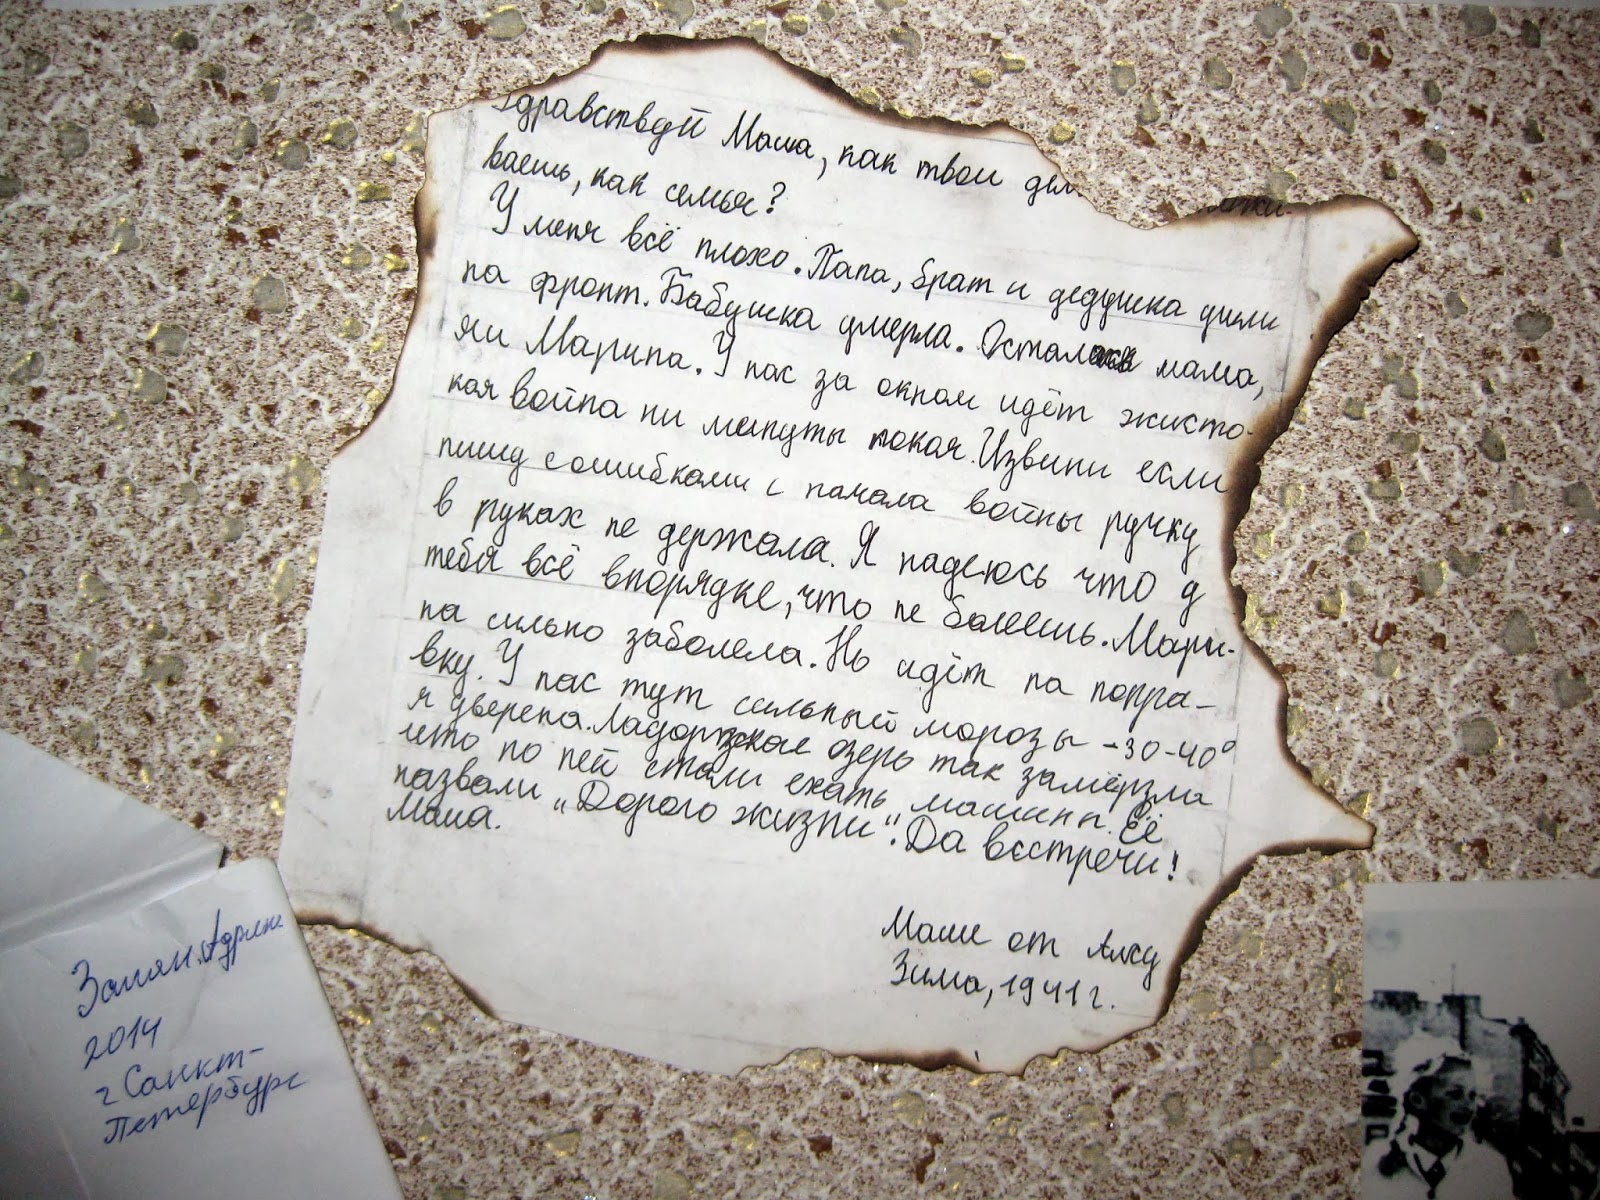 Здравствуй Маша, как твои дел
ваешь, как семья?
У меня всё плохо. Папа, брат и дедушка ушли
на фронт. Бабушка умерла. Осталась мама,
я и Марина. У нас за окном идёт жисто-
кая война ни минуты покоя. Извини если
пишу с ошибками с начала войны ручку
в руках не держала. Я надеюсь что у
тебя всё впорядке, что не болеешь. Мари-
на сильно заболела. Но идёт на попра-
вку. У нас тут сильный морозы -30-40°
я уверена. Ладожское озеро так замёрзла
что по ней стали ехать машины. Её
назвали "Дорога жизни". Да встречи!
Маша.
Маше от Алсу
Зима, 1941 г.
2014
г Санкт-
Петербург